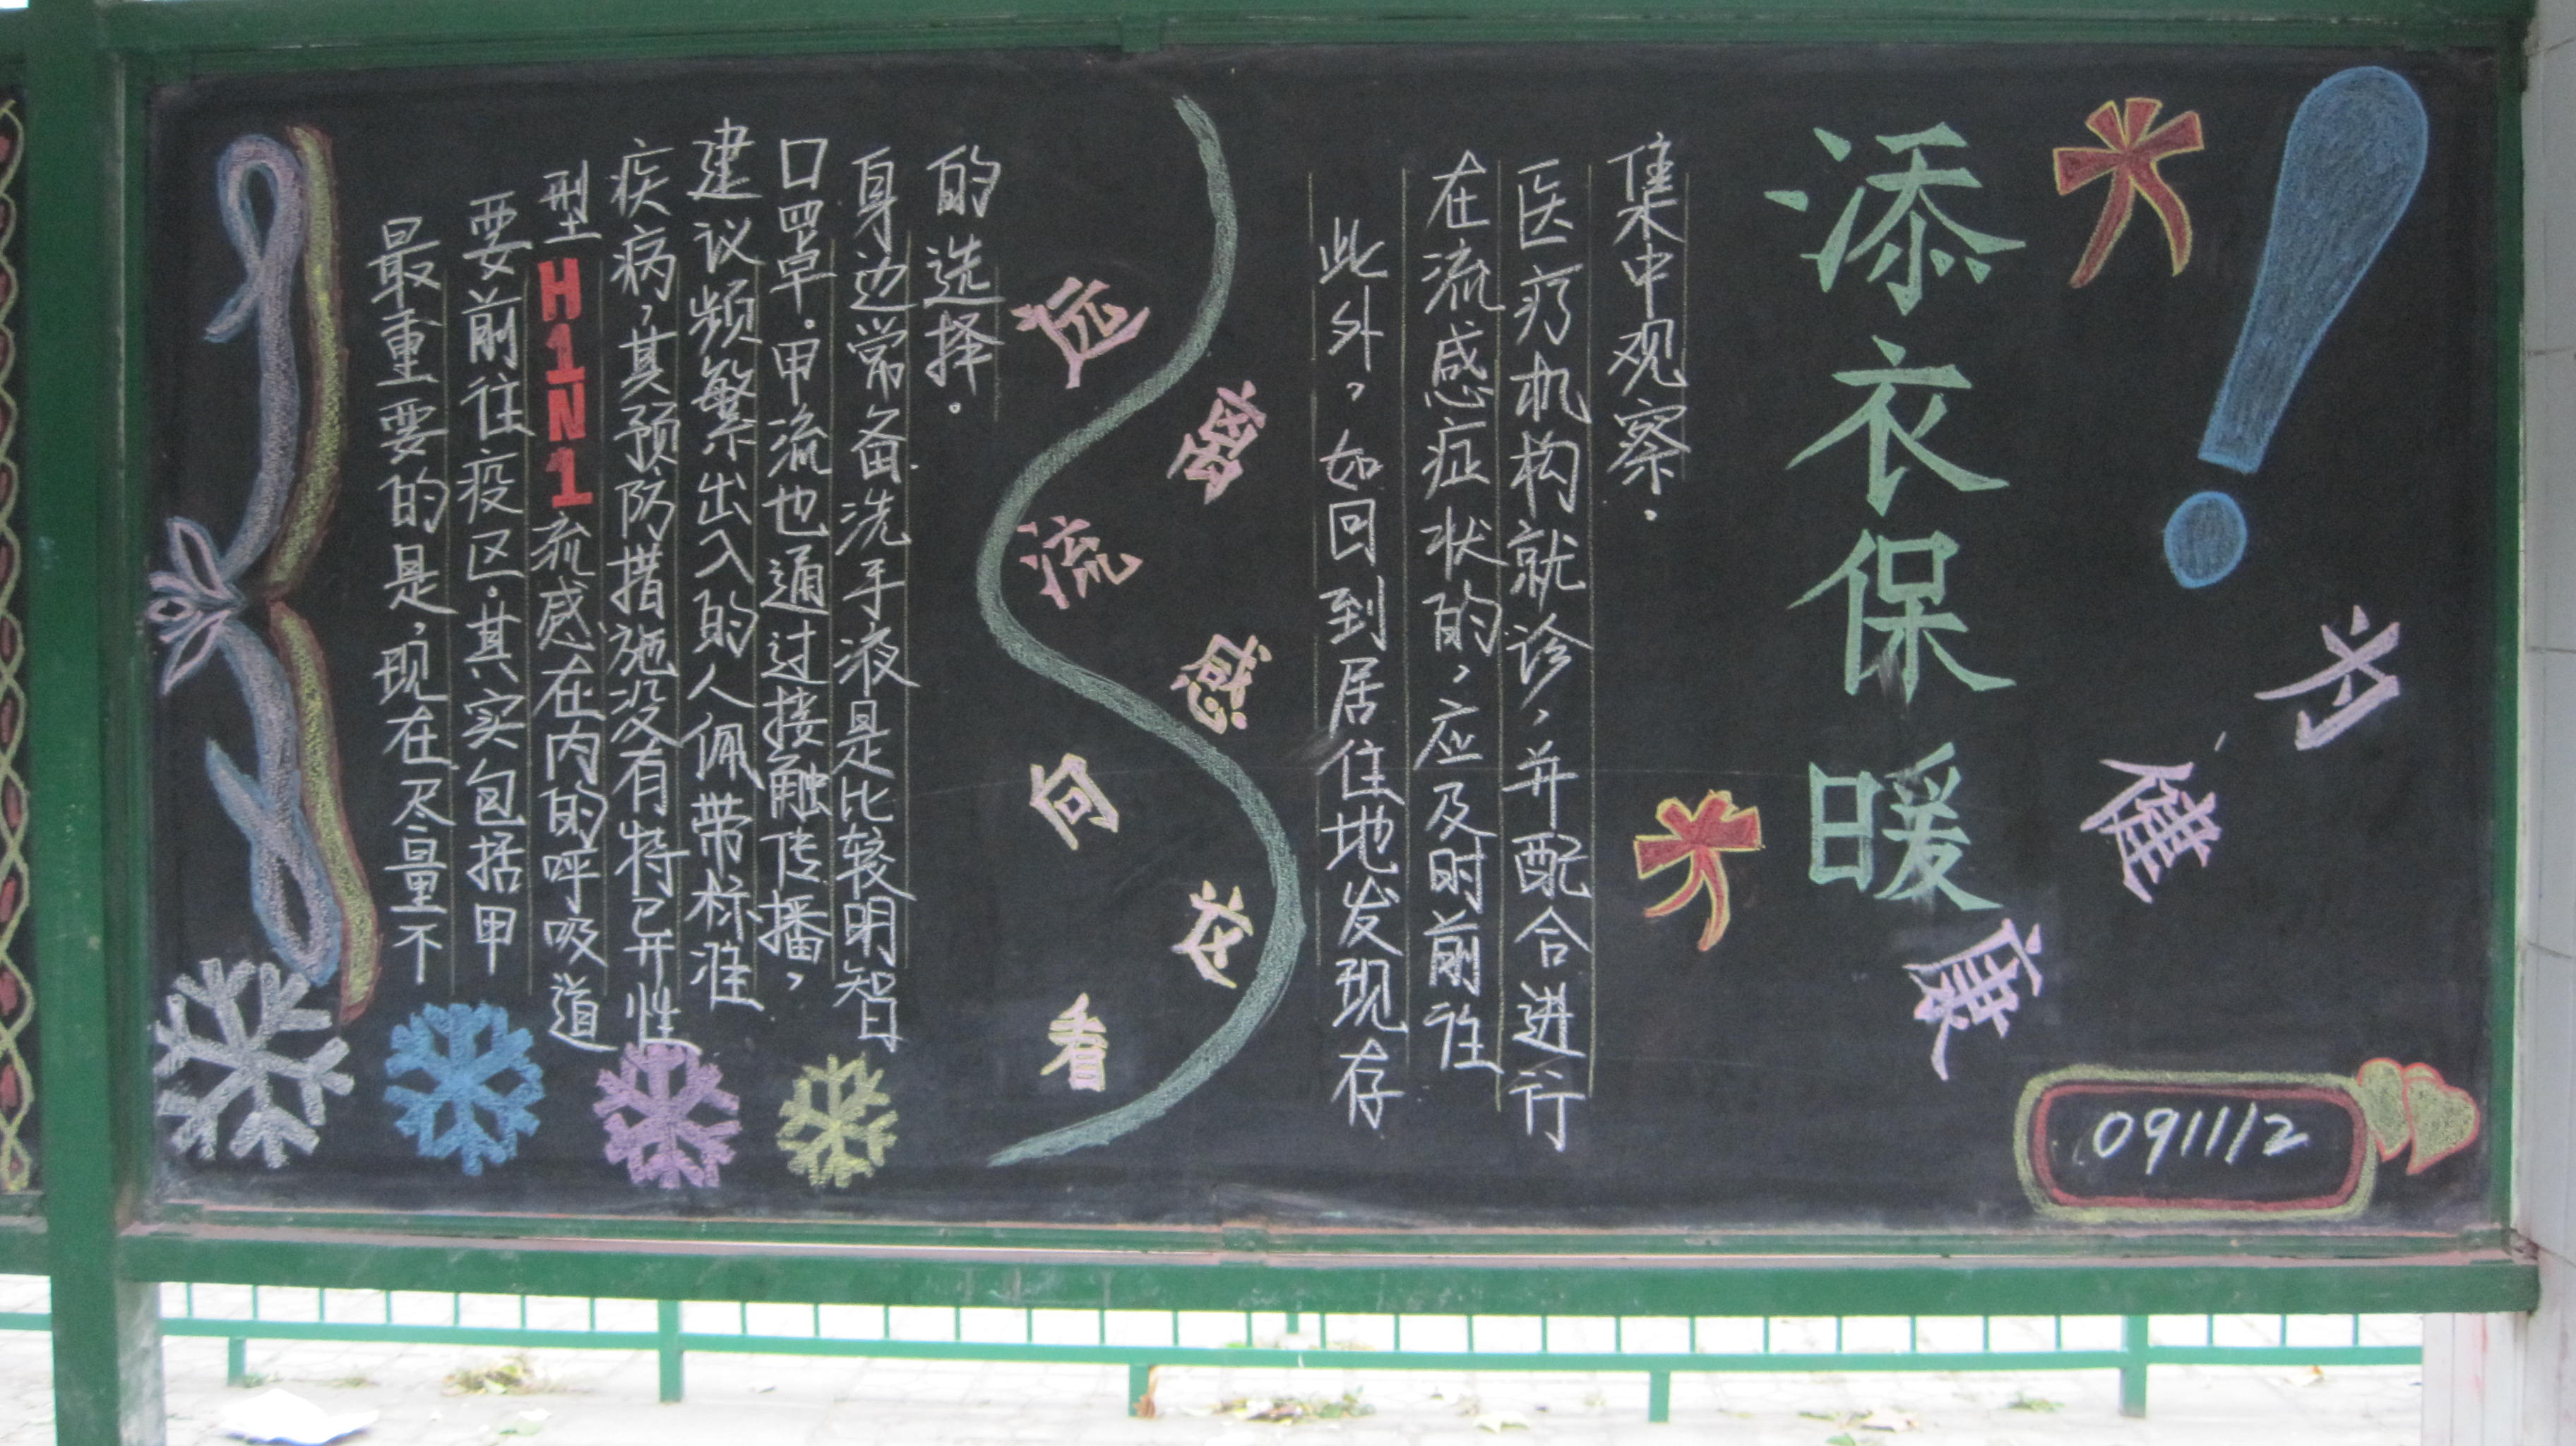 最重要的是,现在尽量不
要前往疫区.其实包括甲
型H1N1流感在内的呼吸道
疾病,其预防措施没有特异性
建议频繁出入的人佩带标准
口罩.甲流也通过接触传播,
身边常备洗手液是比较明智
的选择.
远离流感向这看
此外,如回到居住地发现存
在流感症状的,应及时前往
医疗机构就诊,并配合进行
集中观察.
添衣保暖
为健康
091112